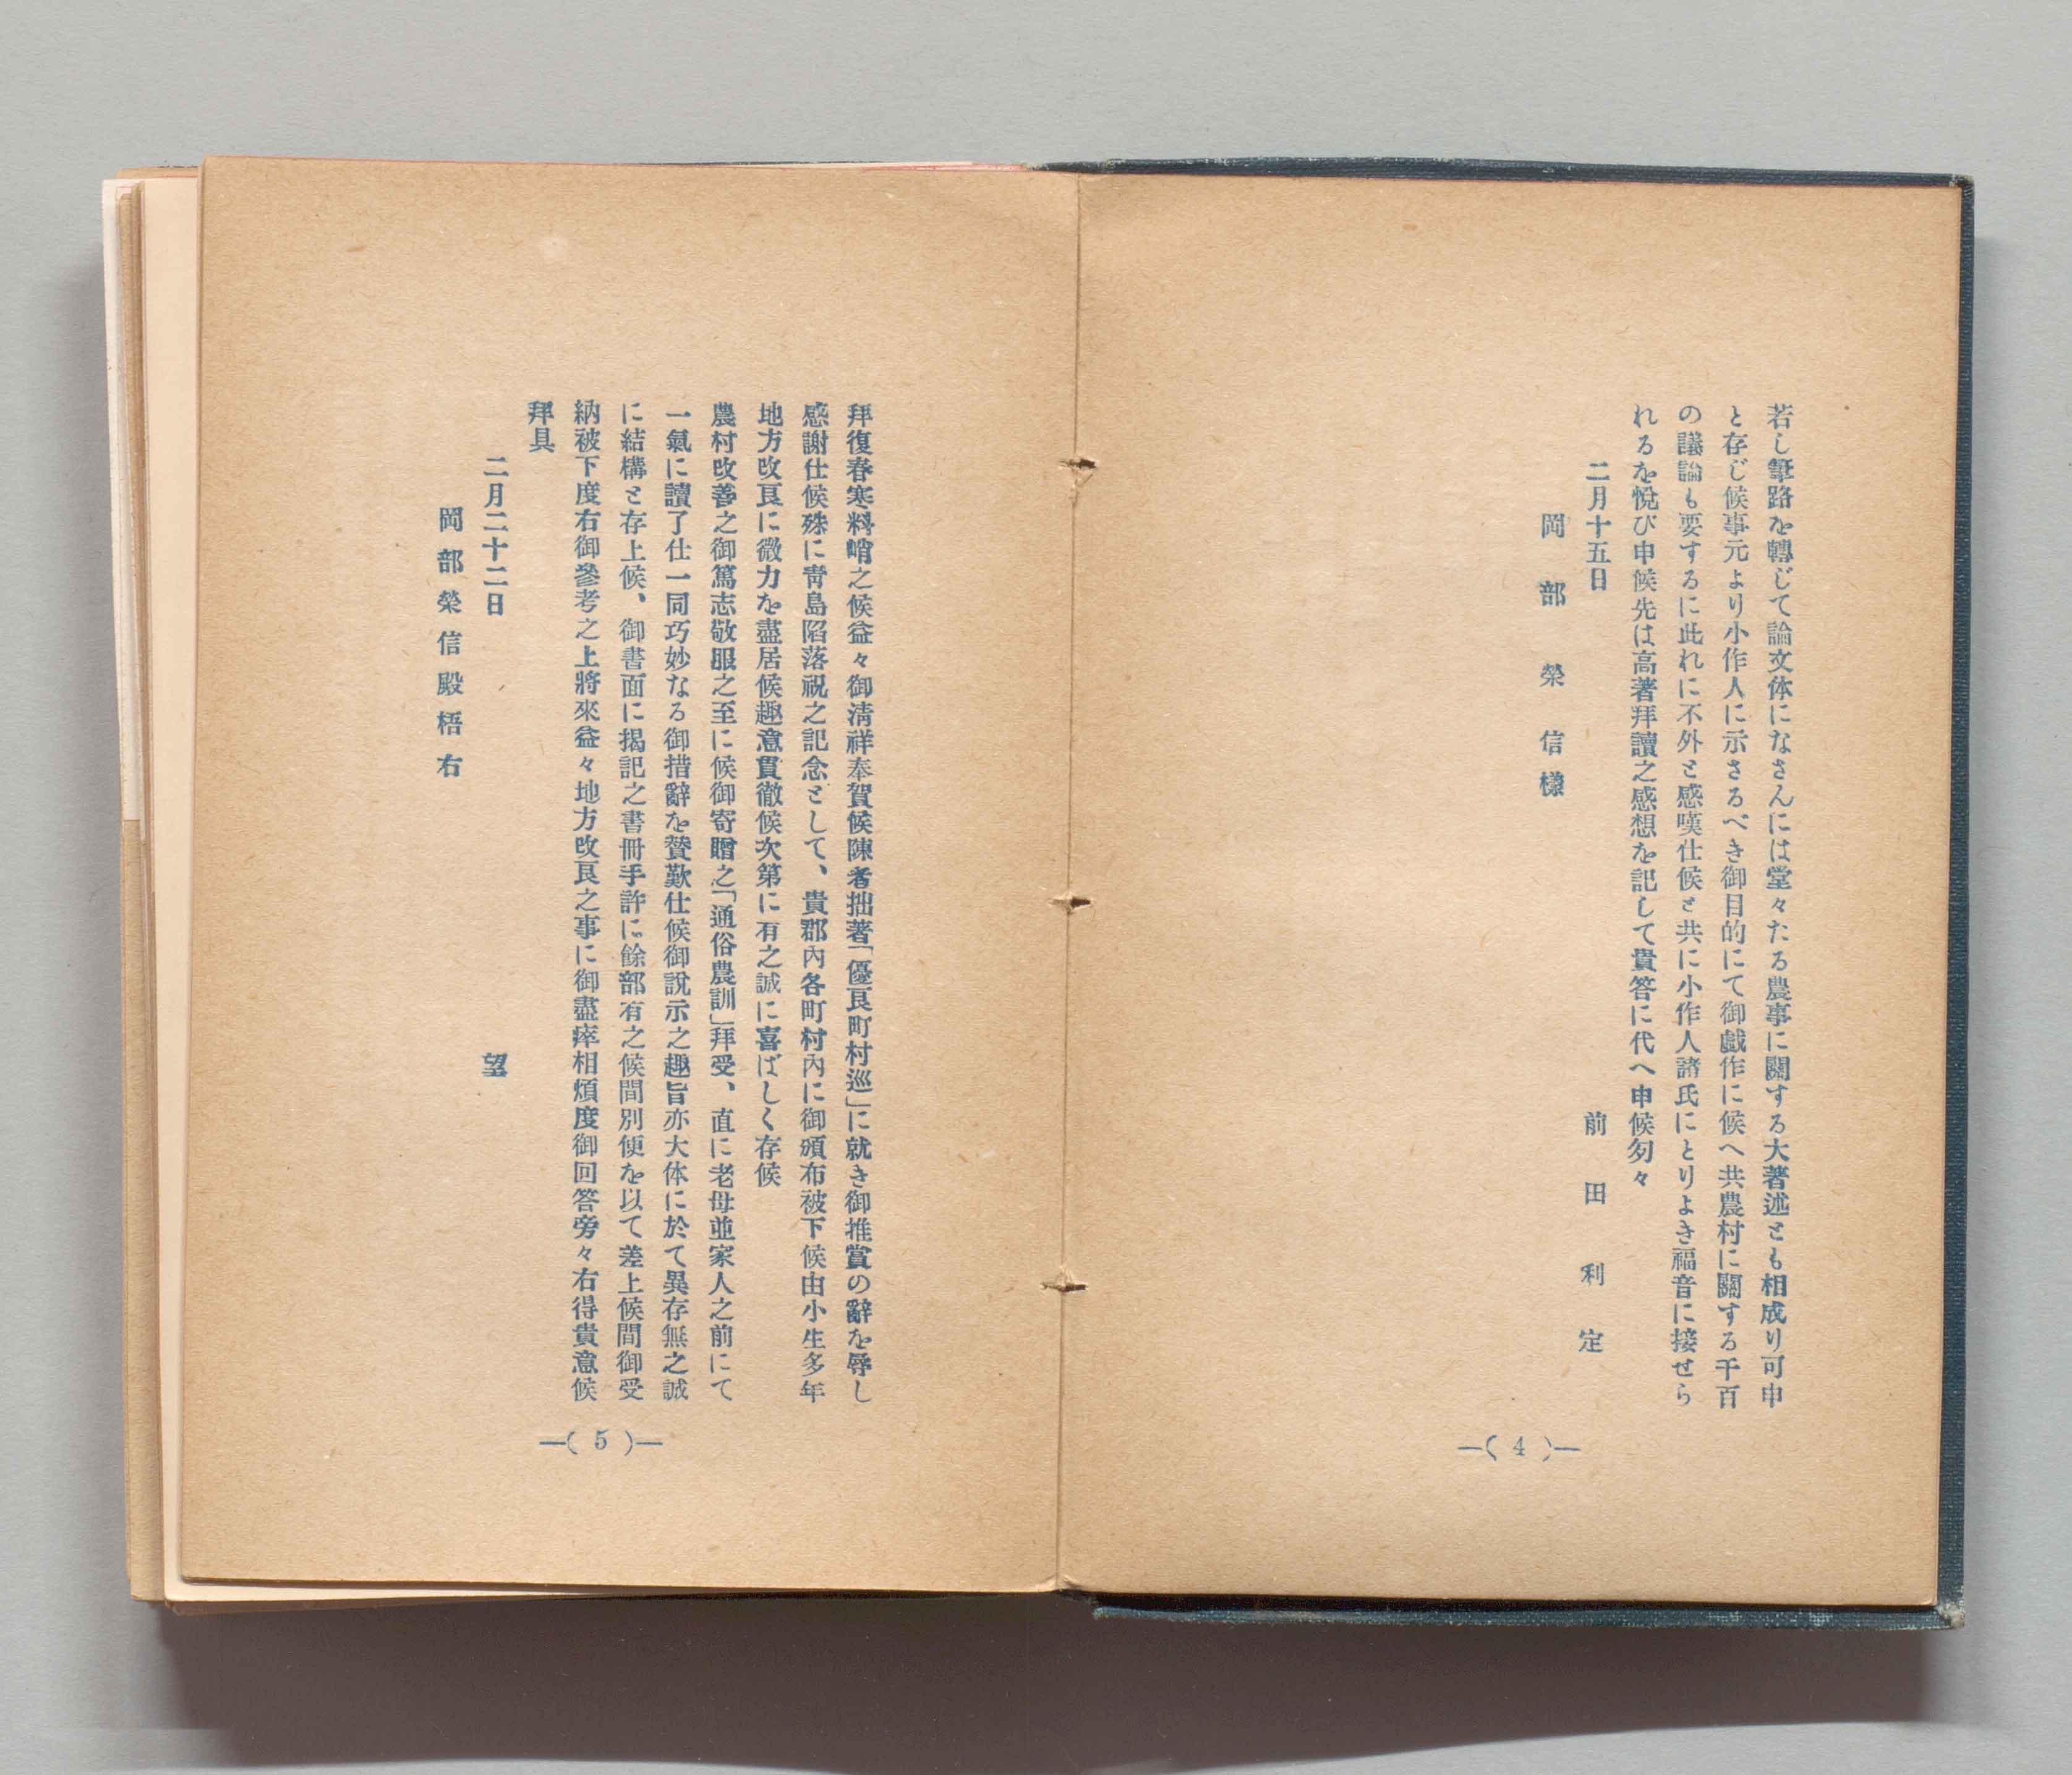 若し筆路を轉じて論文体になさんには堂々たる農事に關する大著述とも相成り可申
と存じ候事元より小作人に示さるべき御目的にて御戯作に候へ共農村に關する千百
の議論も要するに此れに不外と感嘆仕候と共に小作人諸氏にとりよき福音に接せら
れるを悅び申候先は高著拜讀之感想を記して貴答に代へ申候匆々
二月十五日　前田利定
岡部榮信樣
―( 4 )―
拜復春寒料峭之候益々御淸祥奉賀候陳者拙著「優良町村巡」に就き御推賞の辭を辱し
感謝仕候殊に靑島陷落祝之記念として、貴郡內各町村內に御頒布被下候由小生多年
地方改良に微力を盡居候趣意貫徹候次第に有之誠に喜ばしく存候
農村改善之御篤志敬服之至に候御寄贈之「通俗農訓」拜受、直に老母並家人之前にて
一氣に讀了仕一同巧妙なる御措辭を贊歎仕候御說示之趣旨亦大体に於て異存無之誠
に結構と存上候、御書面に揭記之書冊手許に餘部有之候間別便を以て差上候間御受
納被下度右御參考之上將來益々地方改良之事に御盡瘁相煩度御回答旁々右得貴意候
拜具
二月二十二日　望
岡部榮信殿梧右
―( 5 )―